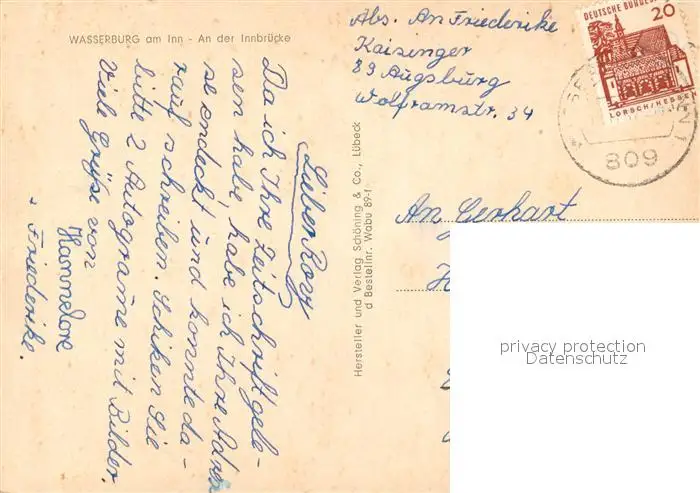 WASSERBURG am Inn - An der Innbrücke
Lieber Roy
Da ich Ihre Zeitschrift gele-
sen habe, habe ich Ihre Adres
se endeckt und konnte da-
rauf schreiben. Schiken Sie
bitte 2 Autograme mit Bilder.
Viele Grüße von
Hannelore
u Friederike.
Hersteller und Verlag Schöning & Co., Lübeck
d Bestellnr. Wabu 89-1
Abs. An Friederike
Kaisinger
89 Augsburg
Wolframstr. 34
DEUTSCHE BUNDESPOST
20
LORSCH/HESSEN
809
An Gerhart
privacy protection
Datenschutz